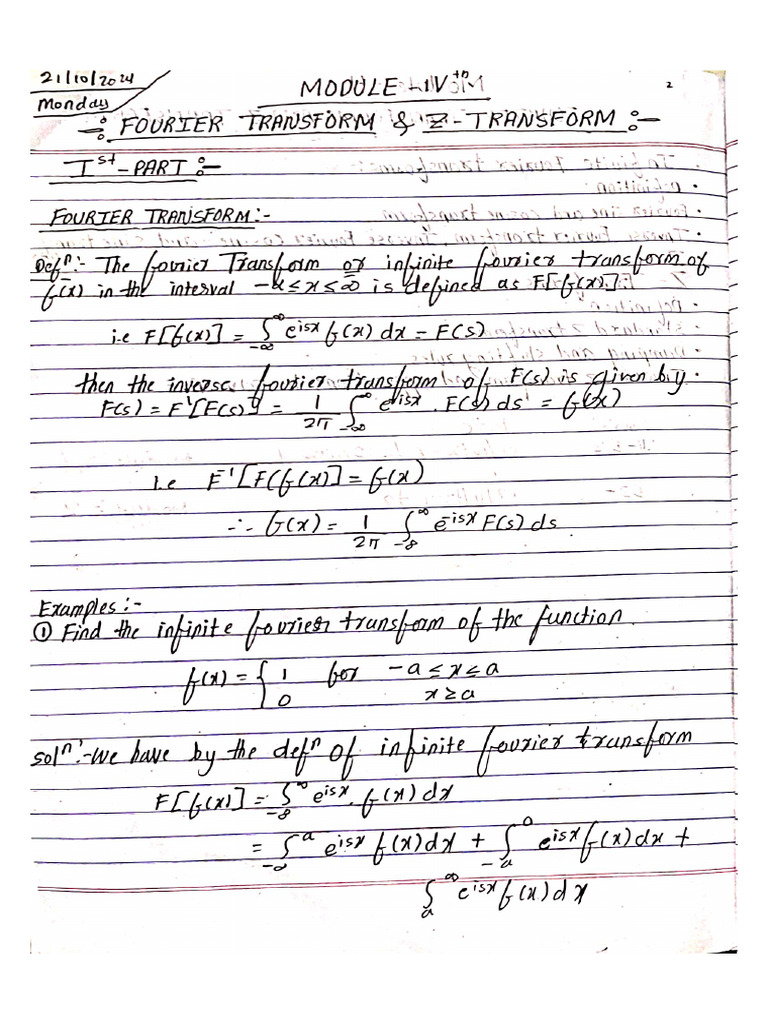 21/10/2024
Monday
MODULE - IVth
2
-: FOURIER TRANSFORM & Z-TRANSFORM :-
Ist-PART :-
FOURIER TRANSFORM:-
Defn:- The fourier Transform or infinite fourier transform of
f(x) in the interval -∞≤x≤∞ is defined as F[f(x)].
i.e F[f(x)] = ∫_{-∞}^{∞} e^{isx} f(x) dx = F(s)
then the inverse fourier transform of F(s) is given by.
F(s) = F^{-1}[F(s)] = 1/2π ∫_{-∞}^{∞} e^{-isx}. F(s) ds = f(x)
i.e F^{-1}[F(f(x)] = f(x)
∴ f(x) = 1/2π ∫_{-∞}^{∞} e^{-isx} F(s) ds
Examples:-
① Find the infinite fourier transform of the function.
f(x) = { 1 for -a ≤ x ≤ a
0 x ≥ a
soln:- we have by the defn of infinite fourier transform
F[f(x)] = ∫_{-∞}^{∞} e^{isx}. f(x) dx
= ∫_{-∞}^{a} e^{isx} f(x) dx + ∫_{-a}^{a} e^{isx} f(x) dx +
∫_{a}^{∞} e^{isx} f(x) dx